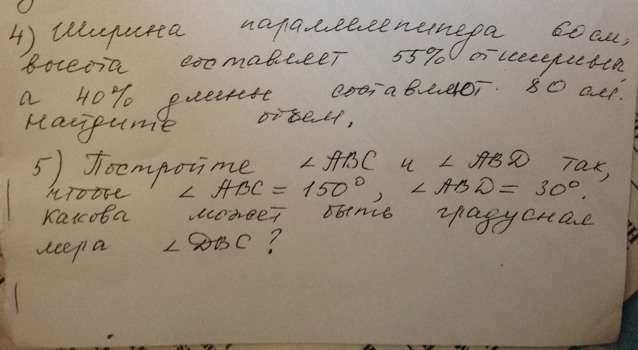 4) Ширина параллелепипеда 60 см,
высота составляет 55% от ширины,
а 40% длины составляют 80 см.
Найдите объем.
5) Постройте ∠ABC и ∠ABD так,
чтобы ∠ABC = 150°, ∠ABD = 30°.
Какова может быть градусная
мера ∠DBC?